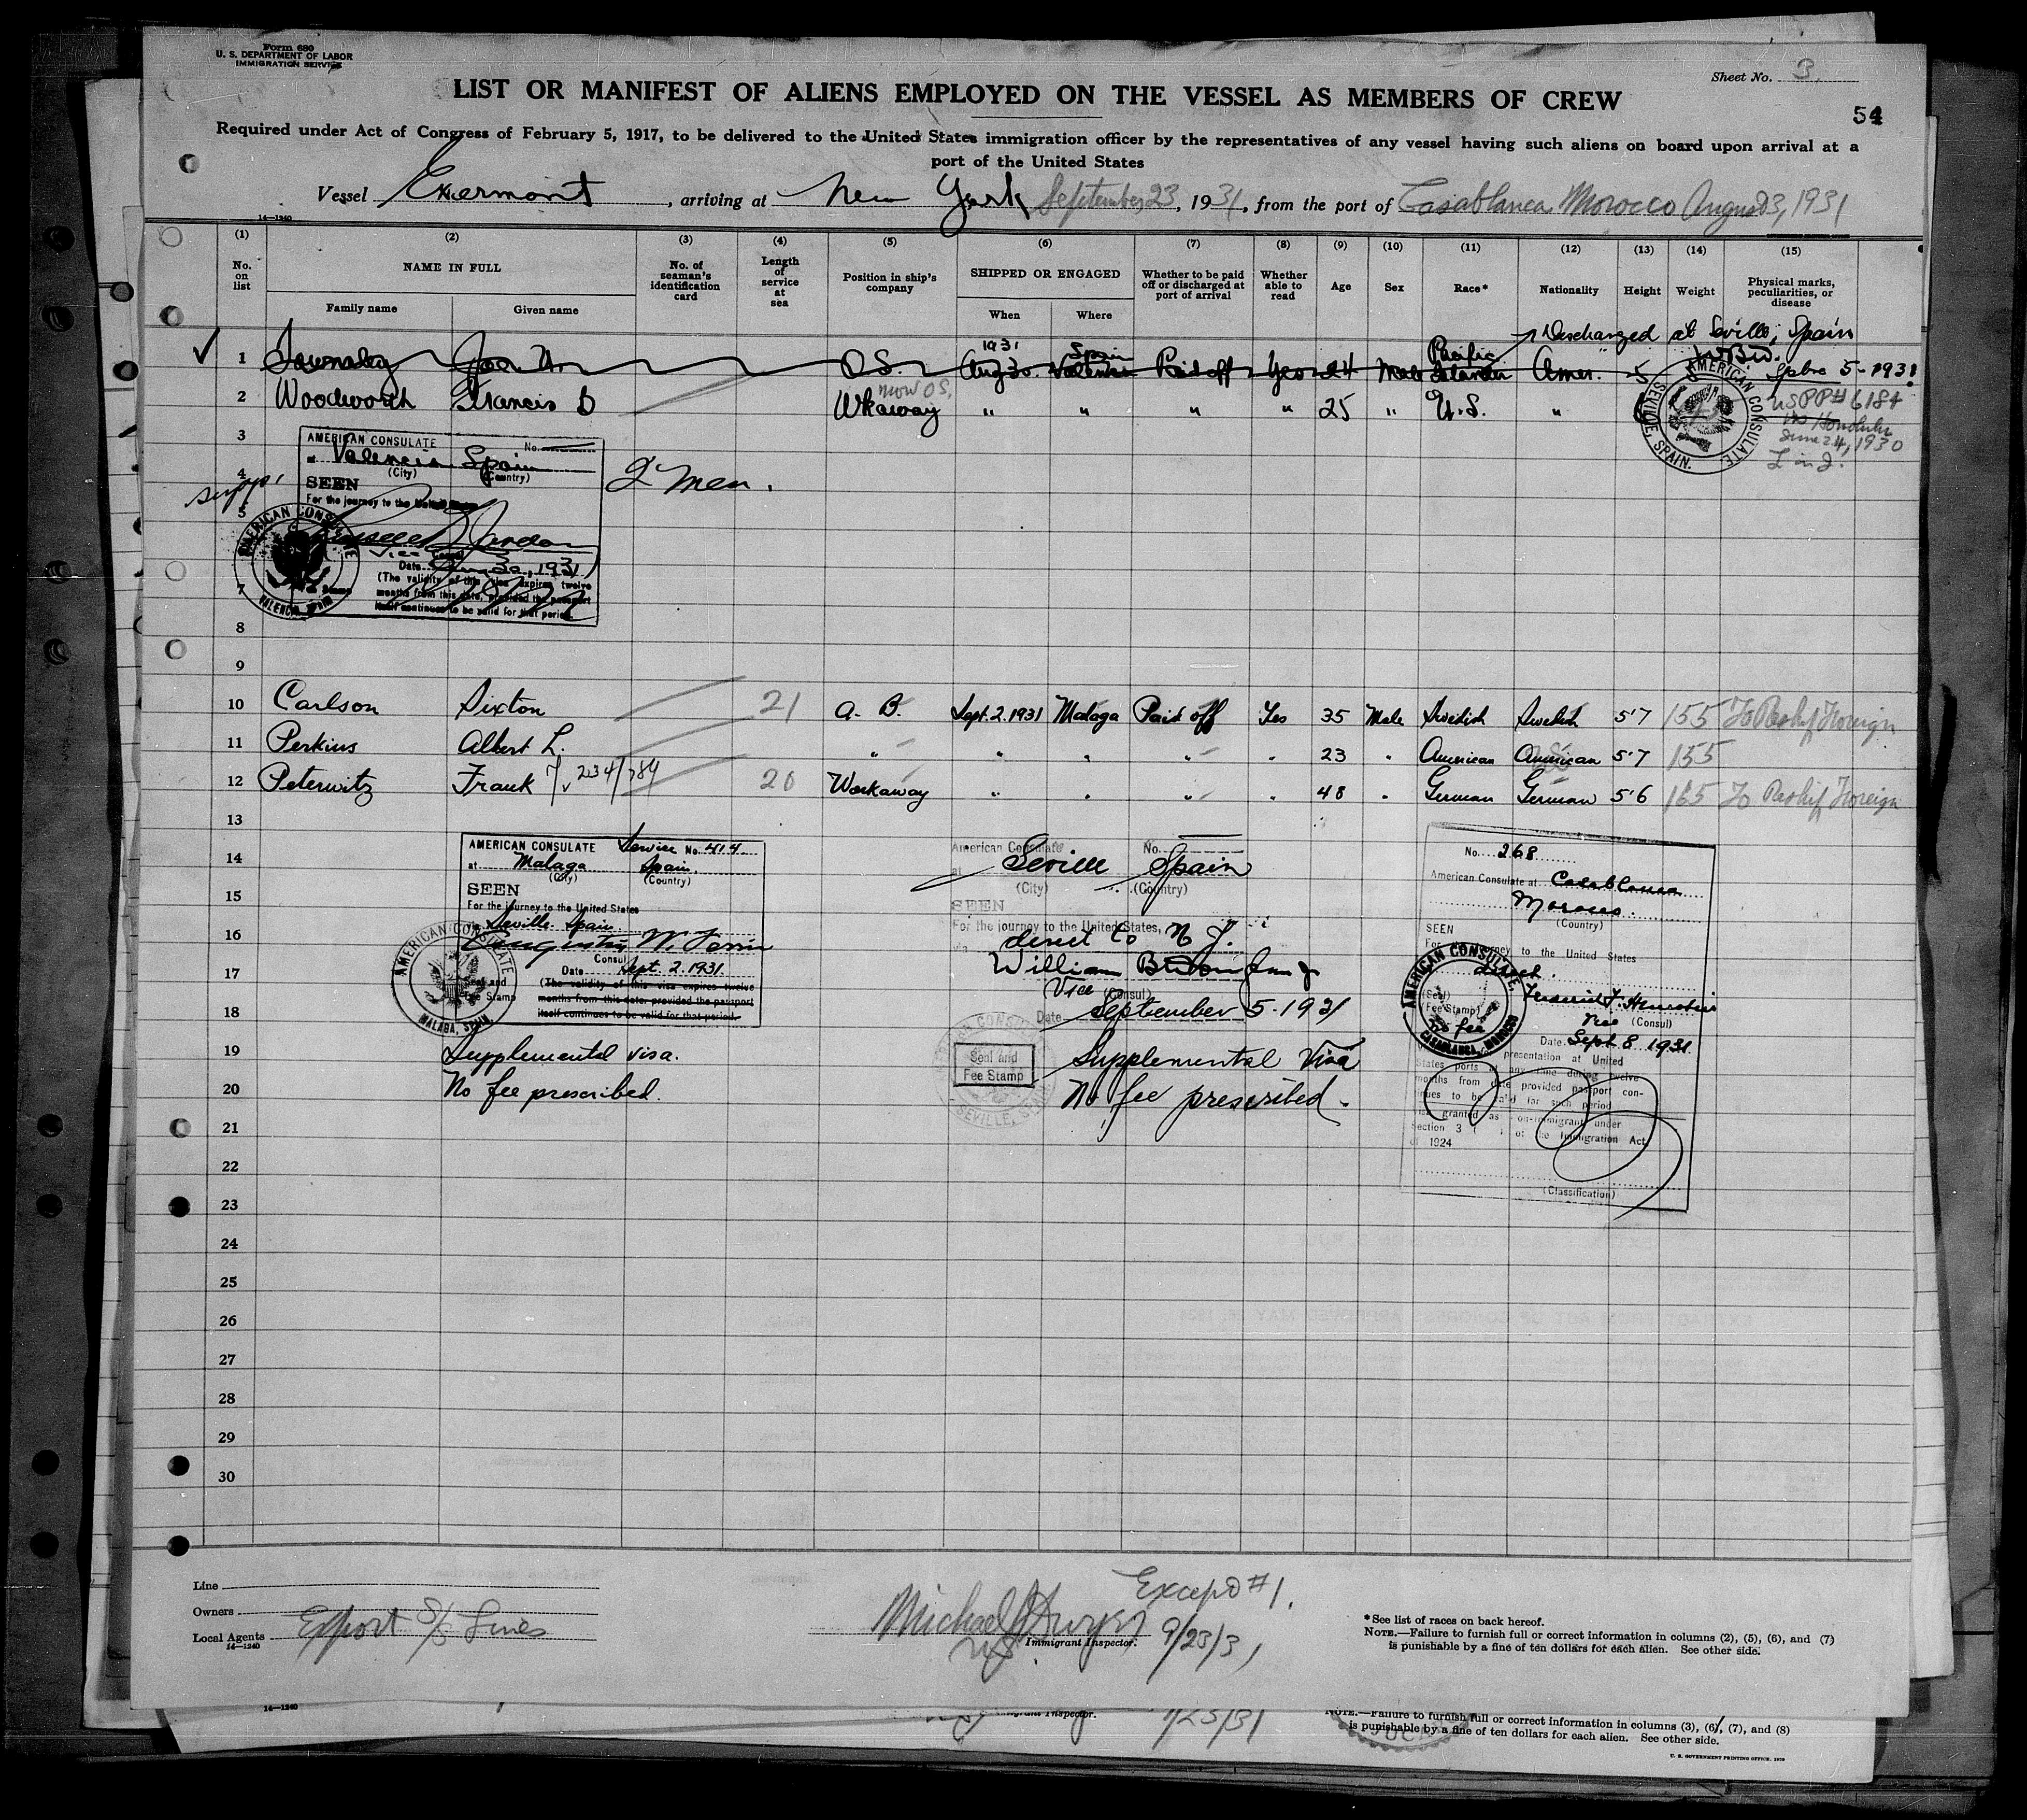 Form 680
U. S. DEPARTMENT OF LABOR
IMMIGRATION SERVICE
Sheet No. 3.
LIST OR MANIFEST OF ALIENS EMPLOYED ON THE VESSEL AS MEMBERS OF CREW
54
Required under Act of Congress of February 5, 1917, to be delivered to the United States immigration officer by the representatives of any vessel having such aliens on board upon arrival at a
port of the United States
Vessel Exermont, arriving at New York September 23, 1931, from the port of Casablanca Morocco
14—1240
(1) (2) (3) (4) (5) (6) (7) (8) (9) (10) (11) (12) (13) (14) (15)
No. on list NAME IN FULL No. of seaman's identification card Length of service at sea Position in ship's company SHIPPED OR ENGAGED Whether to be paid off or discharged at port of arrival Whether able to read Age Sex Race* Nationality Height Weight Physical marks, peculiarities, or disease
Family name Given name When Where
Discharged at Seville, Spain
1 O.S. 1931 Aug 30. Spain Valencia Paid off Yes 24 Male Pacific Islander Amer. 5 5-1931
2 Woodworth Francis D Wkaway now O.S. " " " " 25 " U.S. "
AMERICAN CONSULATE SEVILLE, SPAIN.
USPP# 6184
Honolulu
June 24, 1930
3
AMERICAN CONSULATE No.
at Valencia Spain
(City) (Country)
2 men.
4
SEEN
supp.
For the journey to the United States
5
AMERICAN CONSULATE VALENCIA, SPAIN
Vice Consul
Date 30, 1931
(The validity of this visa expires twelve
7
months from this date, provided the passport
itself continues to be valid for that period.
8
9
10 Carlson Sixton 21 A. B. Sept. 2. 1931 Malaga Paid off Yes 35 Male Swedish Swedish 5'7 155 To Reship Foreign
11 Perkins Albert L. " " " " " 23 " American American 5'7 155
12 Peterwitz Frank 234/784 20 Workaway " " " " 48 " German German 5'6 165 To Reship Foreign
13
14
15
16
17
18
19
20
21
22
23
24
25
26
27
28
29
30
AMERICAN CONSULATE Service No. 414.
at Malaga Spain.
(City) (Country)
SEEN
For the journey to the United States
via Seville Spain
Consul
Date Sept. 2. 1931.
Seal and
Fee Stamp
(The validity of this visa expires twelve
months from this date, provided the passport
itself continues to be valid for that period.
AMERICAN CONSULATE, MALAGA, SPAIN.
Supplemental visa.
No fee prescribed.
American Consulate No.
at Seville Spain
(City) (Country)
SEEN
For the journey to the United States,
via direct to N. Y.
William
Vice (Consul)
Date September 5-1931
Seal and
Fee Stamp
Supplemental Visa
No fee prescribed.
No. 268
American Consulate at Casablanca
Morocco.
(Country)
SEEN
For journey to the United States
direct.
(Seal)
(Fee Stamp)
No fee
Vice (Consul)
Date Sept 8 1931
AMERICAN CONSULATE, CASABLANCA, MOROCCO
presentation at United
States ports at any time during twelve
months from date provided passport con-
tinues to be valid for such period
granted as non-immigrant under
Section 3 ( ) of the Immigration Act
of 1924
(Classification)
Line
Owners
Local Agents Export S/S Lines
14—1240
Except #1.
Michael J. Dwyer
Immigrant Inspector. 9/23/31
*See list of races on back hereof.
NOTE.—Failure to furnish full or correct information in columns (2), (5), (6), and (7)
is punishable by a fine of ten dollars for each alien. See other side.
14—1240
Immigrant Inspector. 9/23/31
NOTE.—Failure to furnish full or correct information in columns (3), (6), (7), and (8)
is punishable by a fine of ten dollars for each alien. See other side.
U. S. GOVERNMENT PRINTING OFFICE. 1929